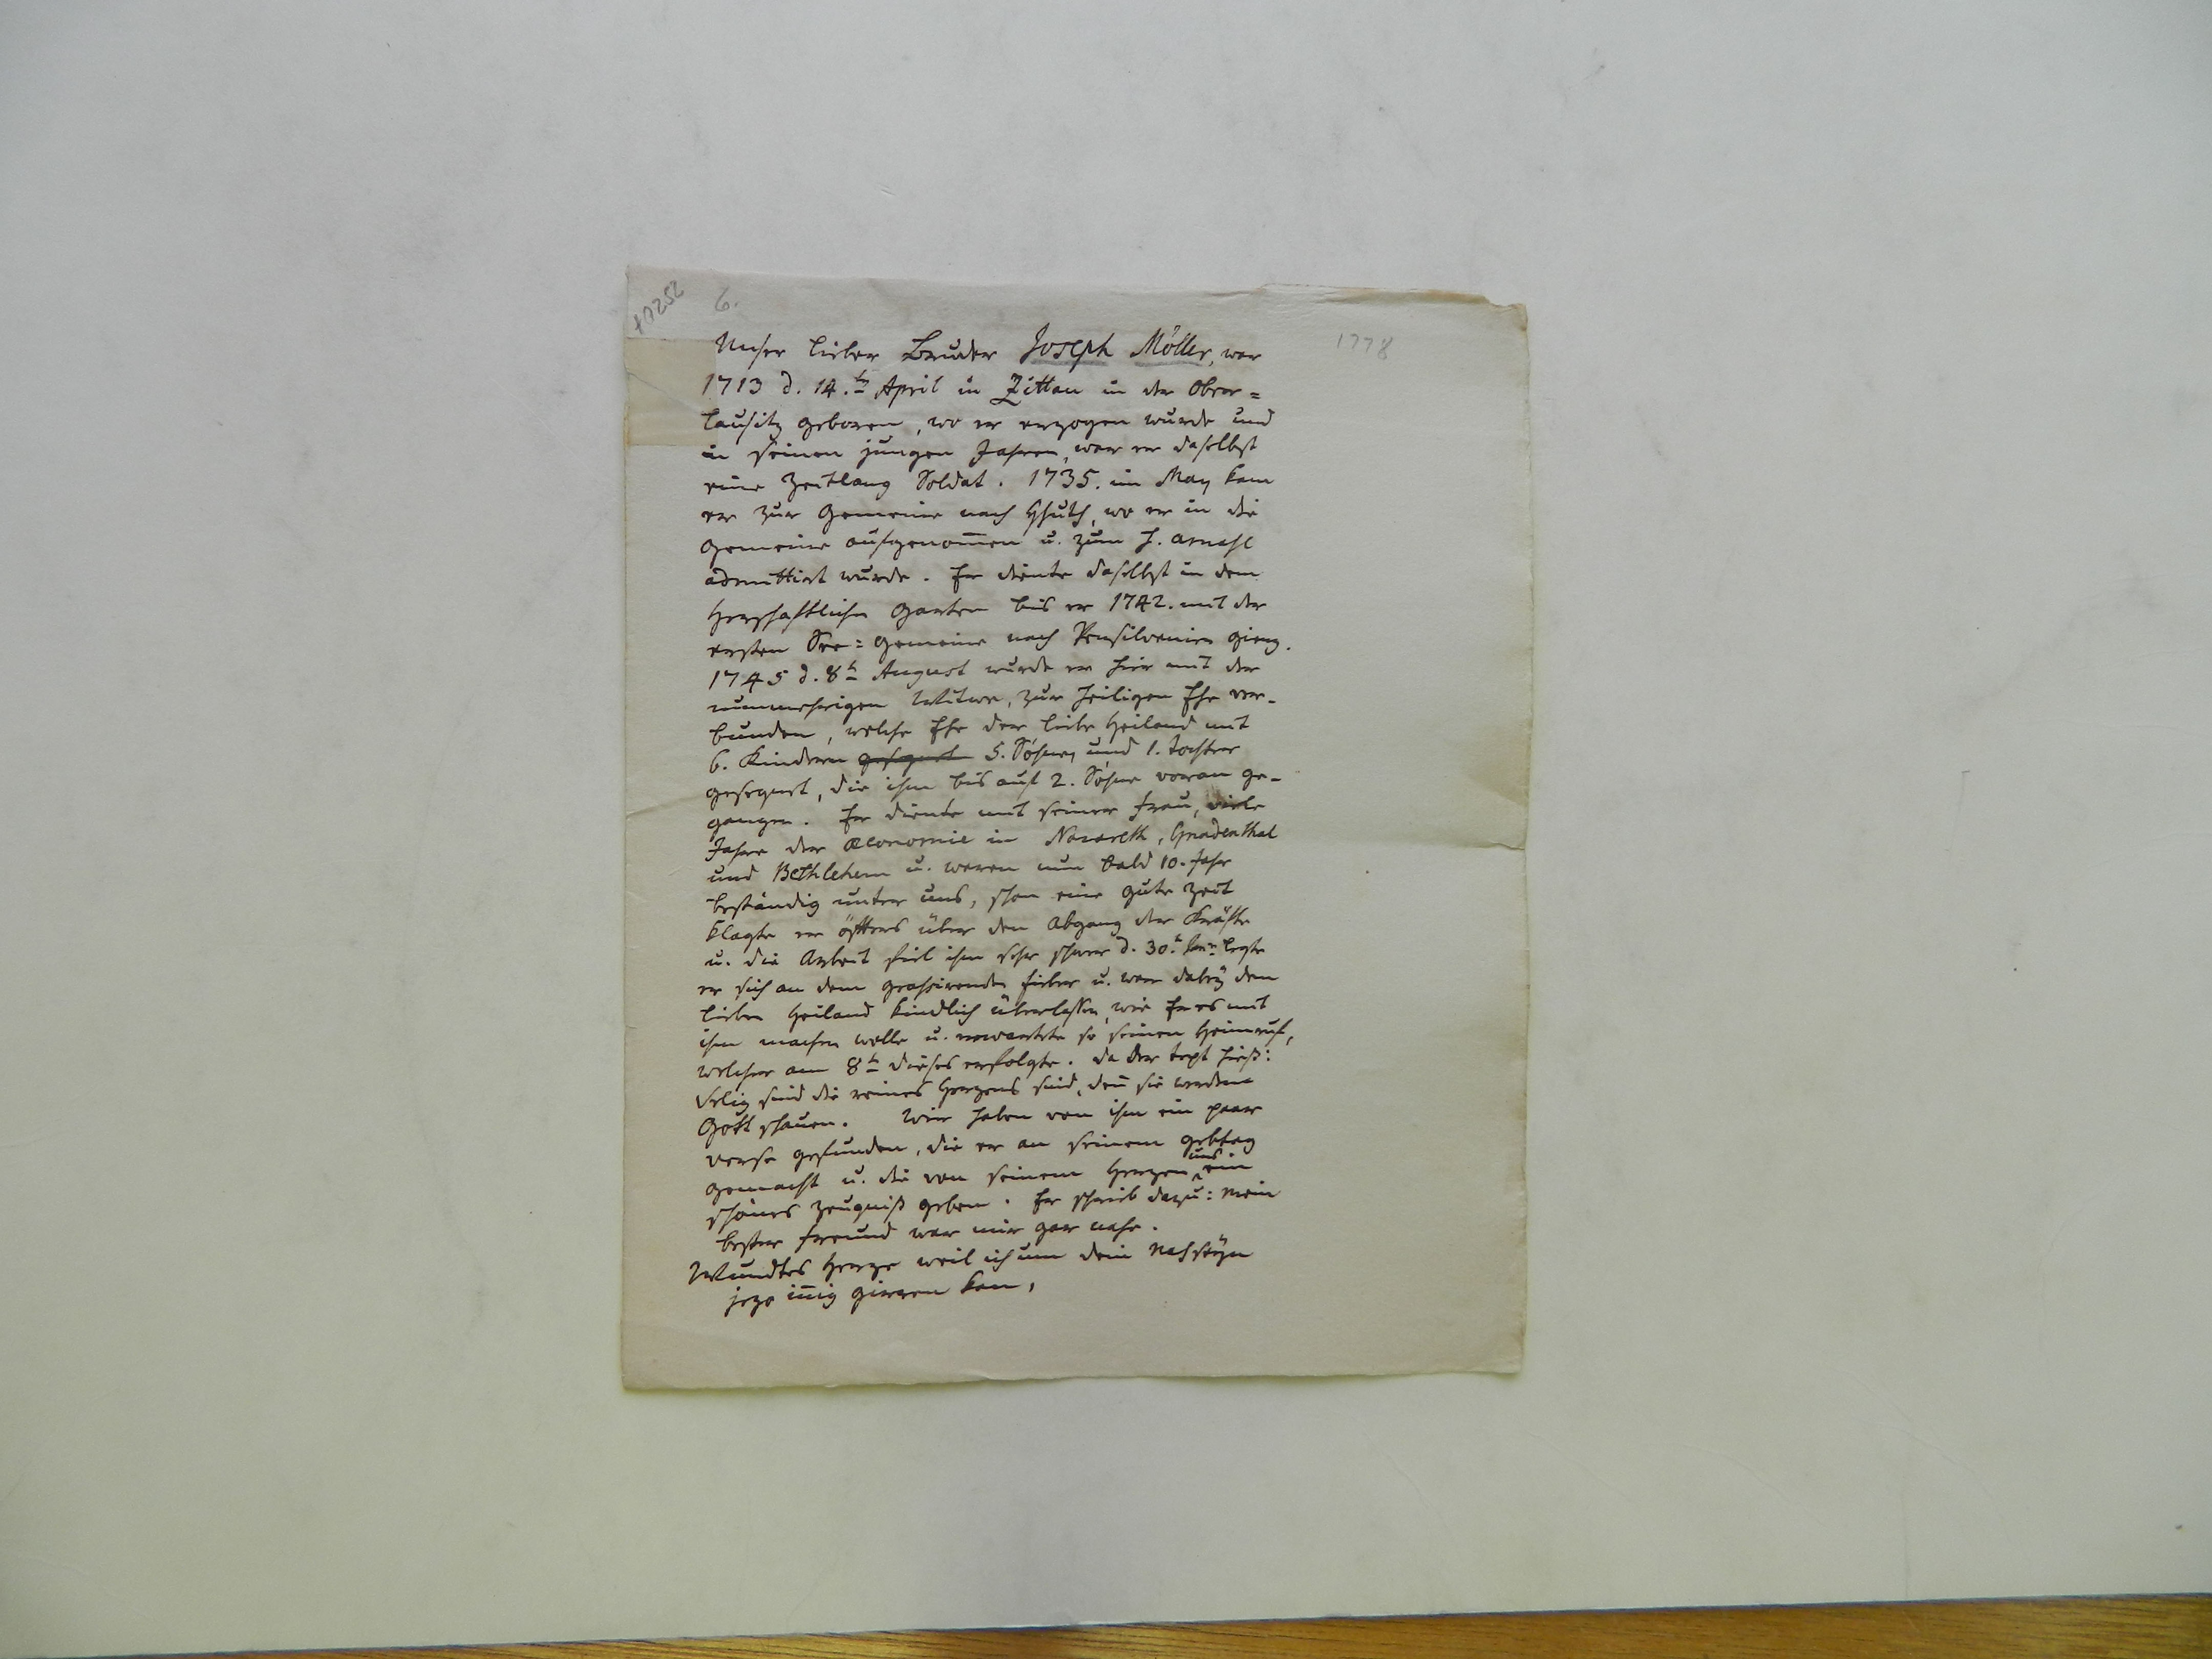 17252
6.
1778
Unser lieber Bruder Joseph Möller, war
1713 d. 14.tn April in Zittau in der Ober=
lausitz geboren, wo er erzogen wurde und
in seinen jungen Jahren, war er daselbst
eine Zeitlang Soldat. 1735. im May kam
er zur Gemeine nach Hhuth, wo er in die
Gemeine aufgenom̅en u. zum H. Armahl
admittirt wurde. Er diente daselbst in dem
Herrschaftlichen Garten bis er 1742. mit der
ersten See=Gemeine nach Pensilvanien gieng.
1745 d. 8tn August wurde er hier mit der
nunmehrigen Witwe, zur Heiligen Ehe ver-
bunden, welche Ehe der liebe Heiland mit
6. Kindern gesegnet 5. Söhne, und 1. Tochter
gesegnet, die ihm bis auf 2. Söhne voran ge-
gangen. Er diente mit seiner Frau, viele
Jahre der Œconomie in Nazareth, Gnadenthal
und Bethlehem u. waren nun bald 10. Jahr
beständig unter uns, schon eine gute Zeit
klagte er öfters über den Abgang der Kräfte
u. die Arbeit fiel ihm sehr schwer d. 30.t legte
er sich an dem grassirenden Fieber u. war dabey dem
lieben Heiland kindlich überlassen, wie Er es mit
ihm machen wolle u. erwartete so seinen Heimruf,
welcher am 8tn dieses erfolgte. da der Text hieß:
Selig sind die reines Herzens sind, den̅ sie werden
Gott schauen. Wir haben von ihm ein paar
Verse gefunden, die er an seinem gebtag
gemacht u. die von seinem Herzen uns ein
schönes Zeugniß geben. Er schrieb dazu: Mein
bester Freund war mir gar nahe.
Wundtes Herze weil ich um dein Nahseyn
jezo in̅ig girren kan,